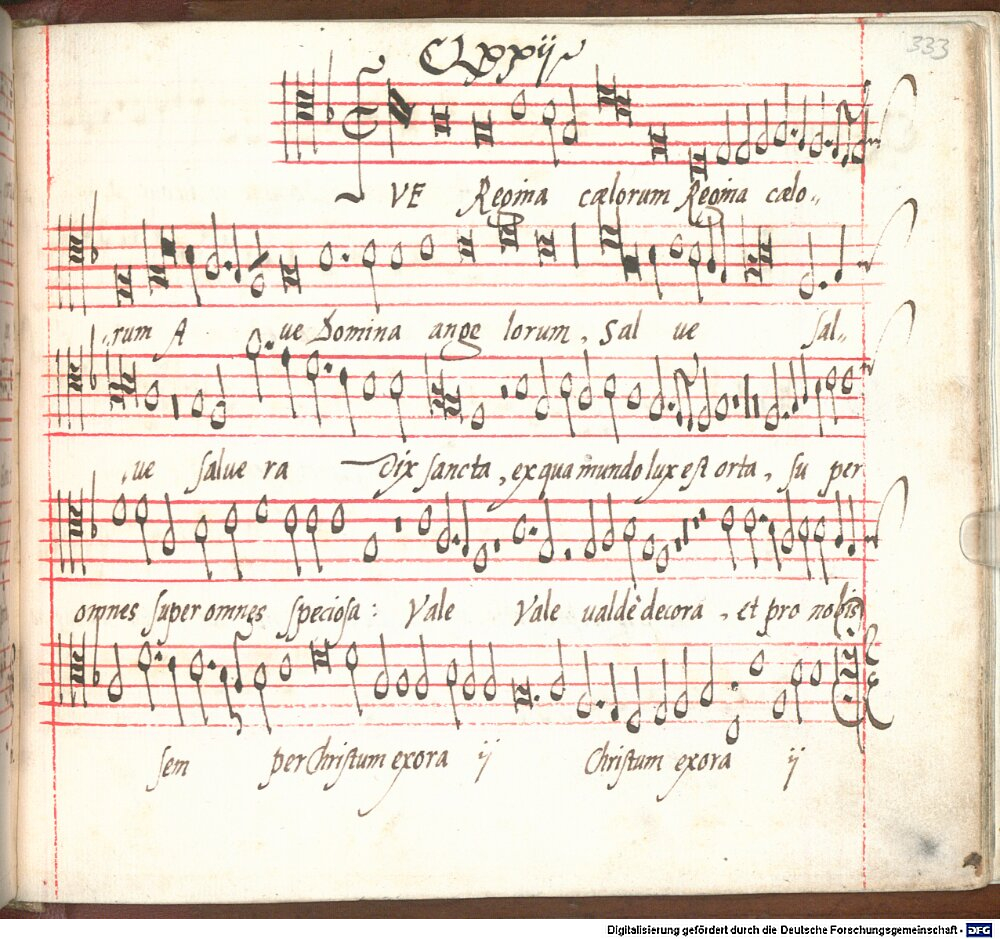 333
CLXXij
AVE Regina cælorum Regina cælo-
-rum A ue Domina ange lorum, Sal ue sal-
,ue salue ra dix sancta, ex qua mundo lux est orta, su per
omnes super omnes speciosa: Vale Vale ualdè decora, et pro nobis
sem per Christum exora ij Christum exora ij
Digitalisierung gefördert durch die Deutsche Forschungsgemeinschaft - DFG